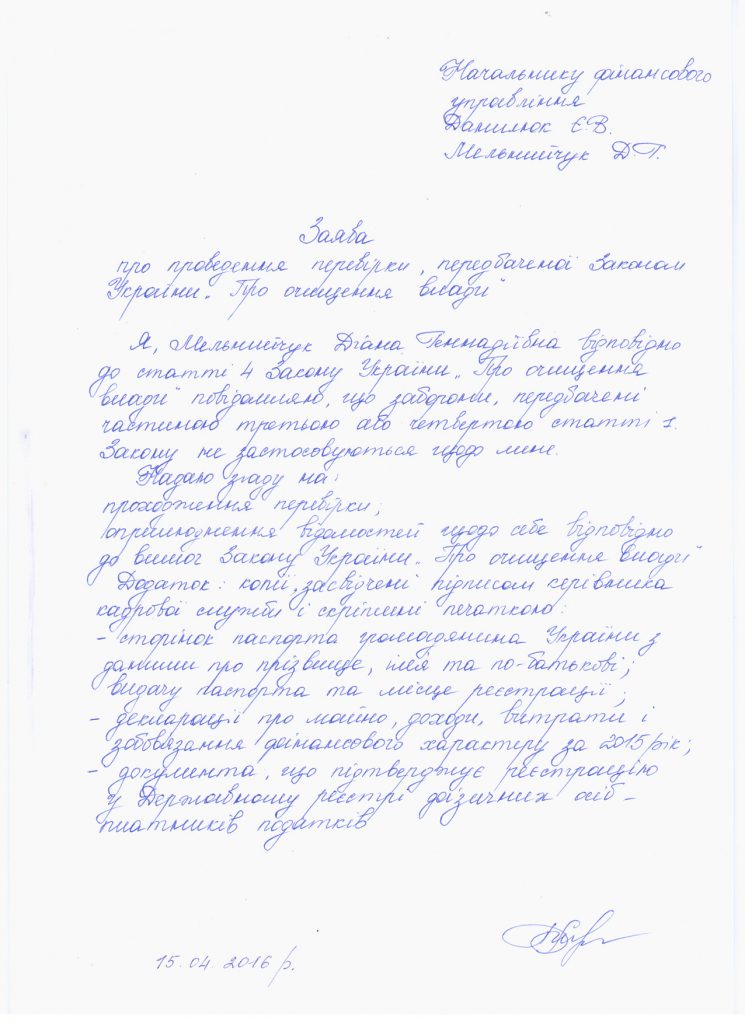 Начальнику фінансового
управління
Данилюк Є.В.
Мельнийчук Д.Г.
Заява
про проведення перевірки, передбаченої Законом
України „Про очищення влади"
Я, Мельнийчук Діана Геннадіївна відповідно
до статті 4 Закону України „Про очищення
влади" повідомляю, що заборони, передбачені
частиною третьою або четвертою статті 1
Закону не застосовуються щодо мене.
Надаю згоду на:
проходження перевірки;
оприлюднення відомостей щодо себе відповідно
до вимог Закону України „Про очищення влади"
Додаток: копії, засвідчені підписом керівника
кадрової служби і скріплені печаткою:
- сторінок паспорта громадянина України з
даними про прізвище, ім'я та по-батькові;
видачу паспорта та місце реєстрації;
- декларації про майно, доходи, витрати і
зобов'язання фінансового характеру за 2015 рік;
- документа, що підтверджує реєстрацію
у Державному реєстрі фізичних осіб -
платників податків
15.04.2016 р.